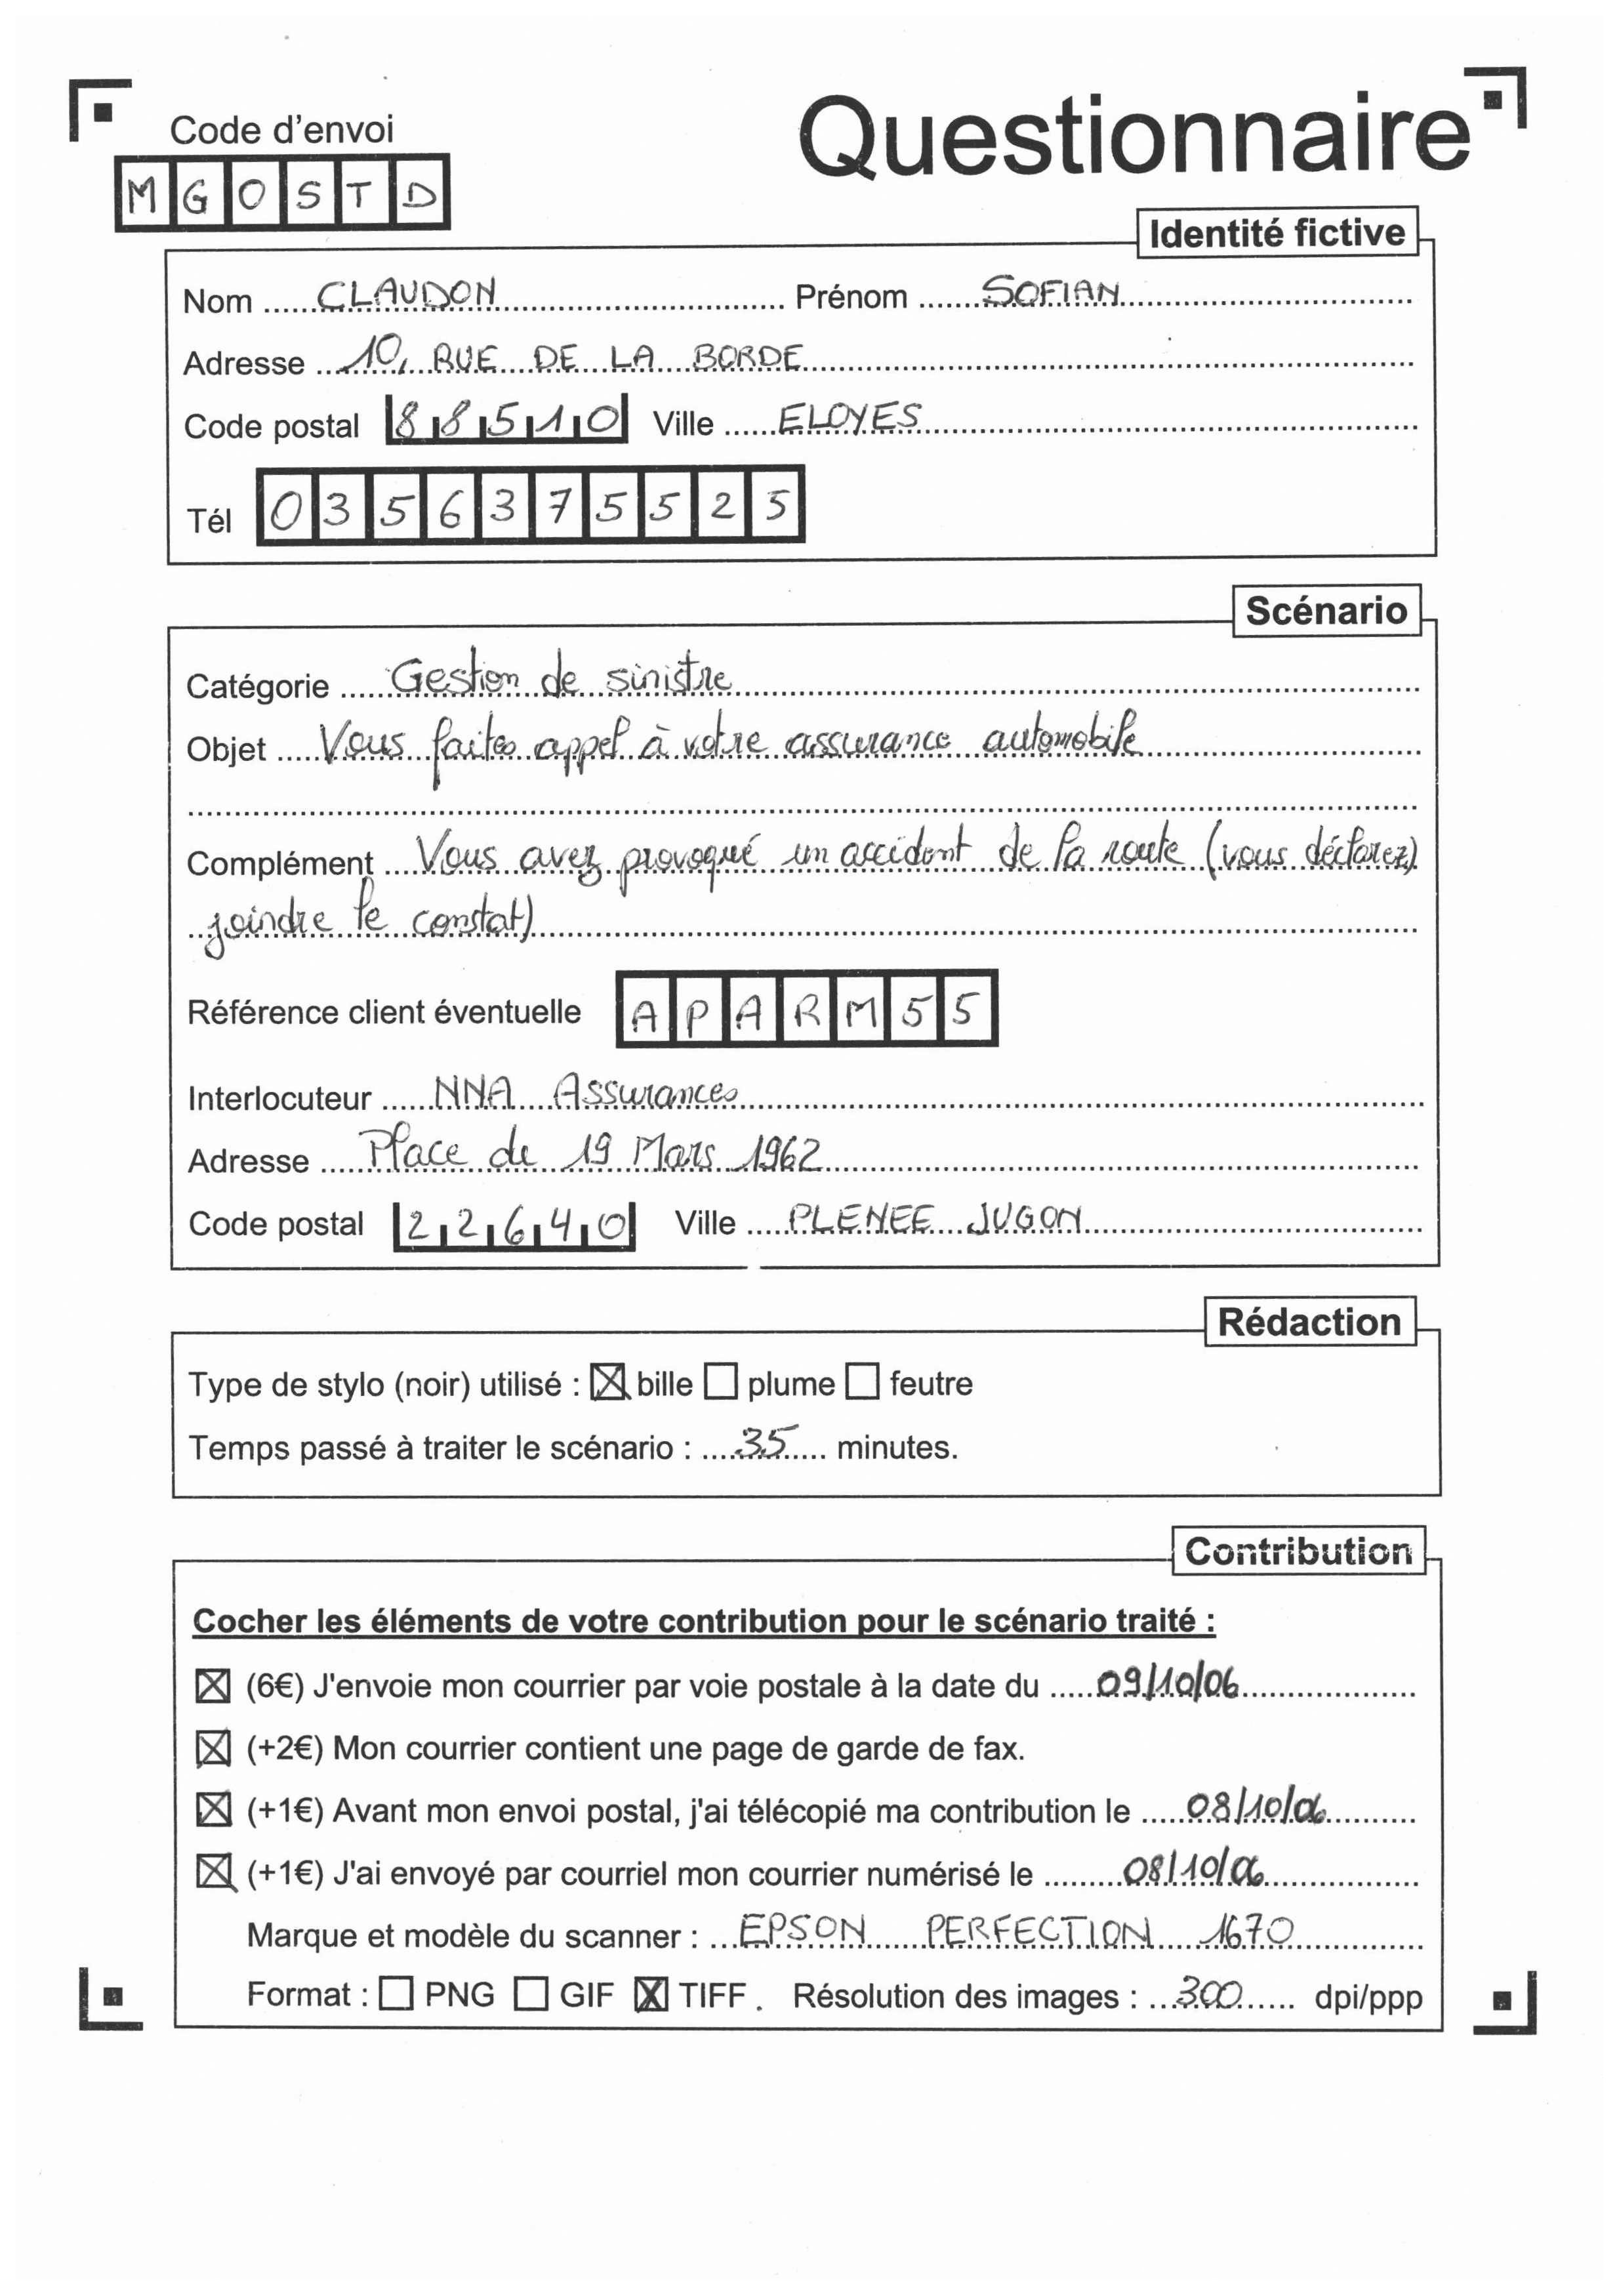 Code d'envoi
Questionnaire
MGOSTD
Identité fictive
Nom CLAUDON Prénom SOFIAN
Adresse 10, RUE DE LA BORDE
Code postal 88510 Ville ELOYES
Tél 0356375525
Scénario
Catégorie Gestion de sinistre
Objet Vous faites appel à votre assurance automobile
Complément Vous avez provoqué un accident de la route (vous déclarez)
joindre le constat)
Référence client éventuelle APARM55
Interlocuteur NNA Assurances
Adresse Place du 19 Mars 1962
Code postal 22640 Ville PLENEE JUGON
Rédaction
Type de stylo (noir) utilisé : ☒ bille ☐ plume ☐ feutre
Temps passé à traiter le scénario : 35 minutes.
Contribution
Cocher les éléments de votre contribution pour le scénario traité :
☒ (6€) J'envoie mon courrier par voie postale à la date du 09/10/06
☒ (+2€) Mon courrier contient une page de garde de fax.
☒ (+1€) Avant mon envoi postal, j'ai télécopié ma contribution le 08/10/06
☒ (+1€) J'ai envoyé par courriel mon courrier numérisé le 08/10/06
Marque et modèle du scanner : EPSON PERFECTION 1670
Format : ☐ PNG ☐ GIF ☒ TIFF. Résolution des images : 300 dpi/ppp